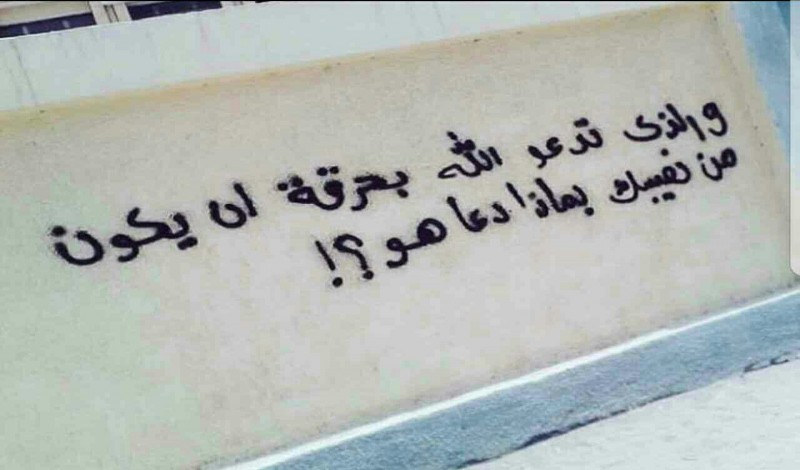 والذي تدعو الله بحرقة ان يكون
من نصيبك بماذا دعا هو؟!